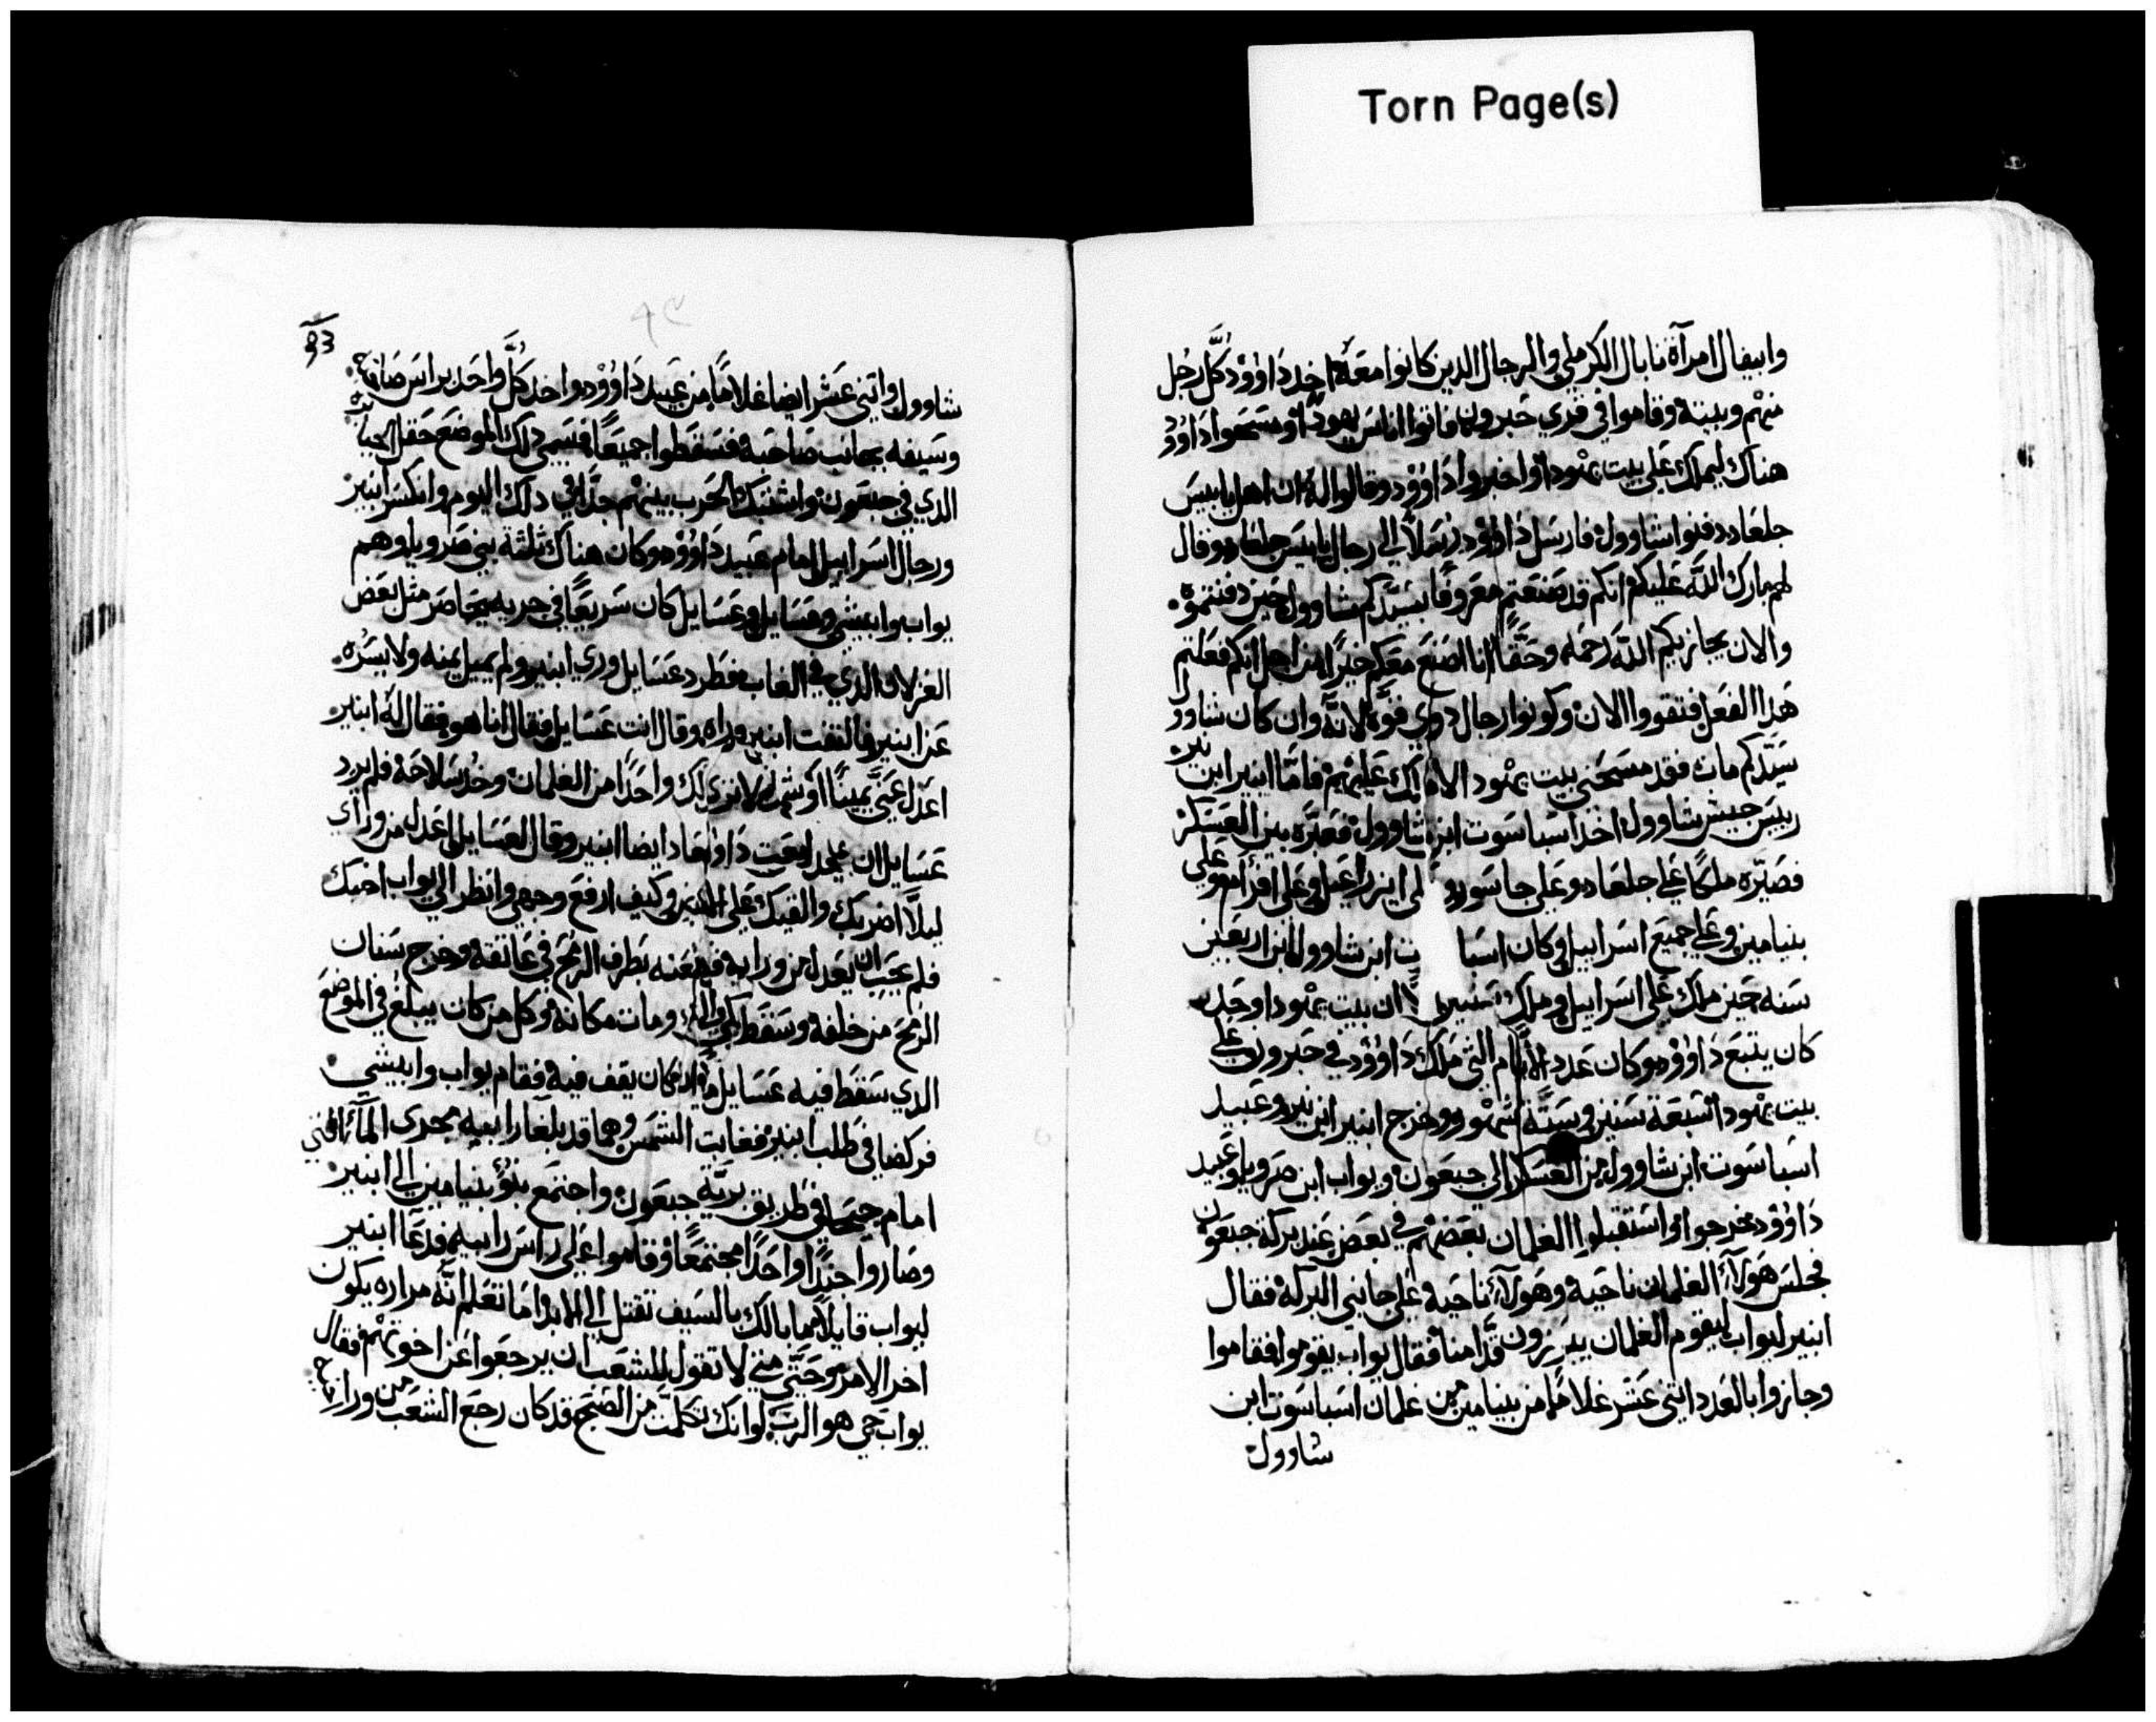 Torn Page(s)
وابيغال امرآة نابال الكرملي والرجال الذين كانوا معه اخد داوود كل رجل
منهم وبيته وقاموا في قري حبرون فاتوا اناس يهودا ومسحوا داوود
هناك ليملك علي بيت يهودا واخبروا داوود وقالوا له ان اهل يابيس
جلعاد دفنوا شاوول فارسل داوود رسلا الي رجال يابيس جلعاد وقال
لهم بارك الله عليكم انكم قد صنعتم معروفا بسيدكم شاوول حين دفنتموه
والان يجازيكم الله رحمه وحقا وانا اصنع معكم خيرا من اجل انكم فعلتم
هدا الفعل فتقووا الان وكونوا رجال دوي قوة لانه وان كان شاوول
سيدكم مات فقد مسحني بيت يهودا لاملك عليهم فاما ابنير ابن نير
رييس جيش شاوول اخد اسباسوت ابن شاوول فعبره بين العسكر
فصيره ملكا علي جلعاد وعلي جاسور لي ايزراعيل وعلي افرام وعلي
بنيامين وعلي جميع اسراييل وكان اسبا ت ابن شاوول ابن اربعين
سنه حين ملك علي اسراييل وملك سنتين الا ان بيت يهودا وحده
كان يتبع داوود وكان عدد الايام التي ملك داوود في حبرون علي
بيت يهودا سبعة سنين وستة اشهر وخرج ابنير ابن نير وعبيد
اسباسوت ابن شاوول من العسكر الي جبعون ويواب ابن صرويا وعبيد
داوود خرجوا واستقبلوا الغلمان بعضهم في بعض عند بركة جبعون
فجلس هولاء الغلمان ناحية وهولاء ناحية علي جانبي البركة فقال
ابنير ليواب ليقوم الغلمان يبرزون قدامنا فقال يواب يقوموا فقاموا
وجازوا بالعدد اتني عشر غلاما من بنيامين من غلمان اسباسوت ابن
شاوول
93
شاوول واتني عشر ايضا غلاما من عبيد داوود واخد كل واحد براس صاحبه
وسيفه بجانب صاحبه فسقطوا جميعا فسمي دلك الموضع حقل
الدي في جبعون واشتبك الحرب بينهم جدا في دلك اليوم وانكسر ابنير
ورجال اسراييل امام عبيد داوود وكان هناك ثلثة بني صرويا وهم
يواب وابيشي وعسايل وعسايل كان سريعا في جريه يحاضر مثل بعض
الغزلان الدي في الغاب فطرد عسايل وري ابنير ولم يميل يمنه ولا يسره
عن ابنير فالتفت ابنير وراه وقال انت عسايل فقال انا هو فقال له ابنير
اعدل عني يمينا او شمالا لك واحدا من الغلمان وخد سلاحه فلم يرد
عسايل ان فعاد ايضا ابنير وقال لعسايل اعدل من وراي
ليلا اضربك والقيك علي الارض وكيف ارفع وجهي وانظر الي يواب اخيك
فلم يحب ان يعدل من ورايه فطعنه بطرف الرمح في عانقه وخرج سنان
الرمح من خلفه وسقط ومات مكانه وكل من كان يبلغ في الموضع
الدي سقط فيه عسايل كان يقف فيه فقام يواب وابيشي
فركضا في طلب ابنير فغابت الشمس وهما قد بلغا رابيه مجري الماء التي
امام في طريق برية جبعون واجتمع بنو بنيامين الي ابنير
وصاروا جندا واحدا مجتمعا وقاموا علي راس رابيه فدعا ابنير
ليواب قايلا ما بالك بالسيف تقتل الي الابد اما تعلم انه مراره يكون
اخر الامر وحتي متي لا تقول للشعب ان يرجعوا عن اخوتهم فقال
يواب حي هو الرب لو انك تكلمت من الصبح قد كان رجع الشعب من ورا